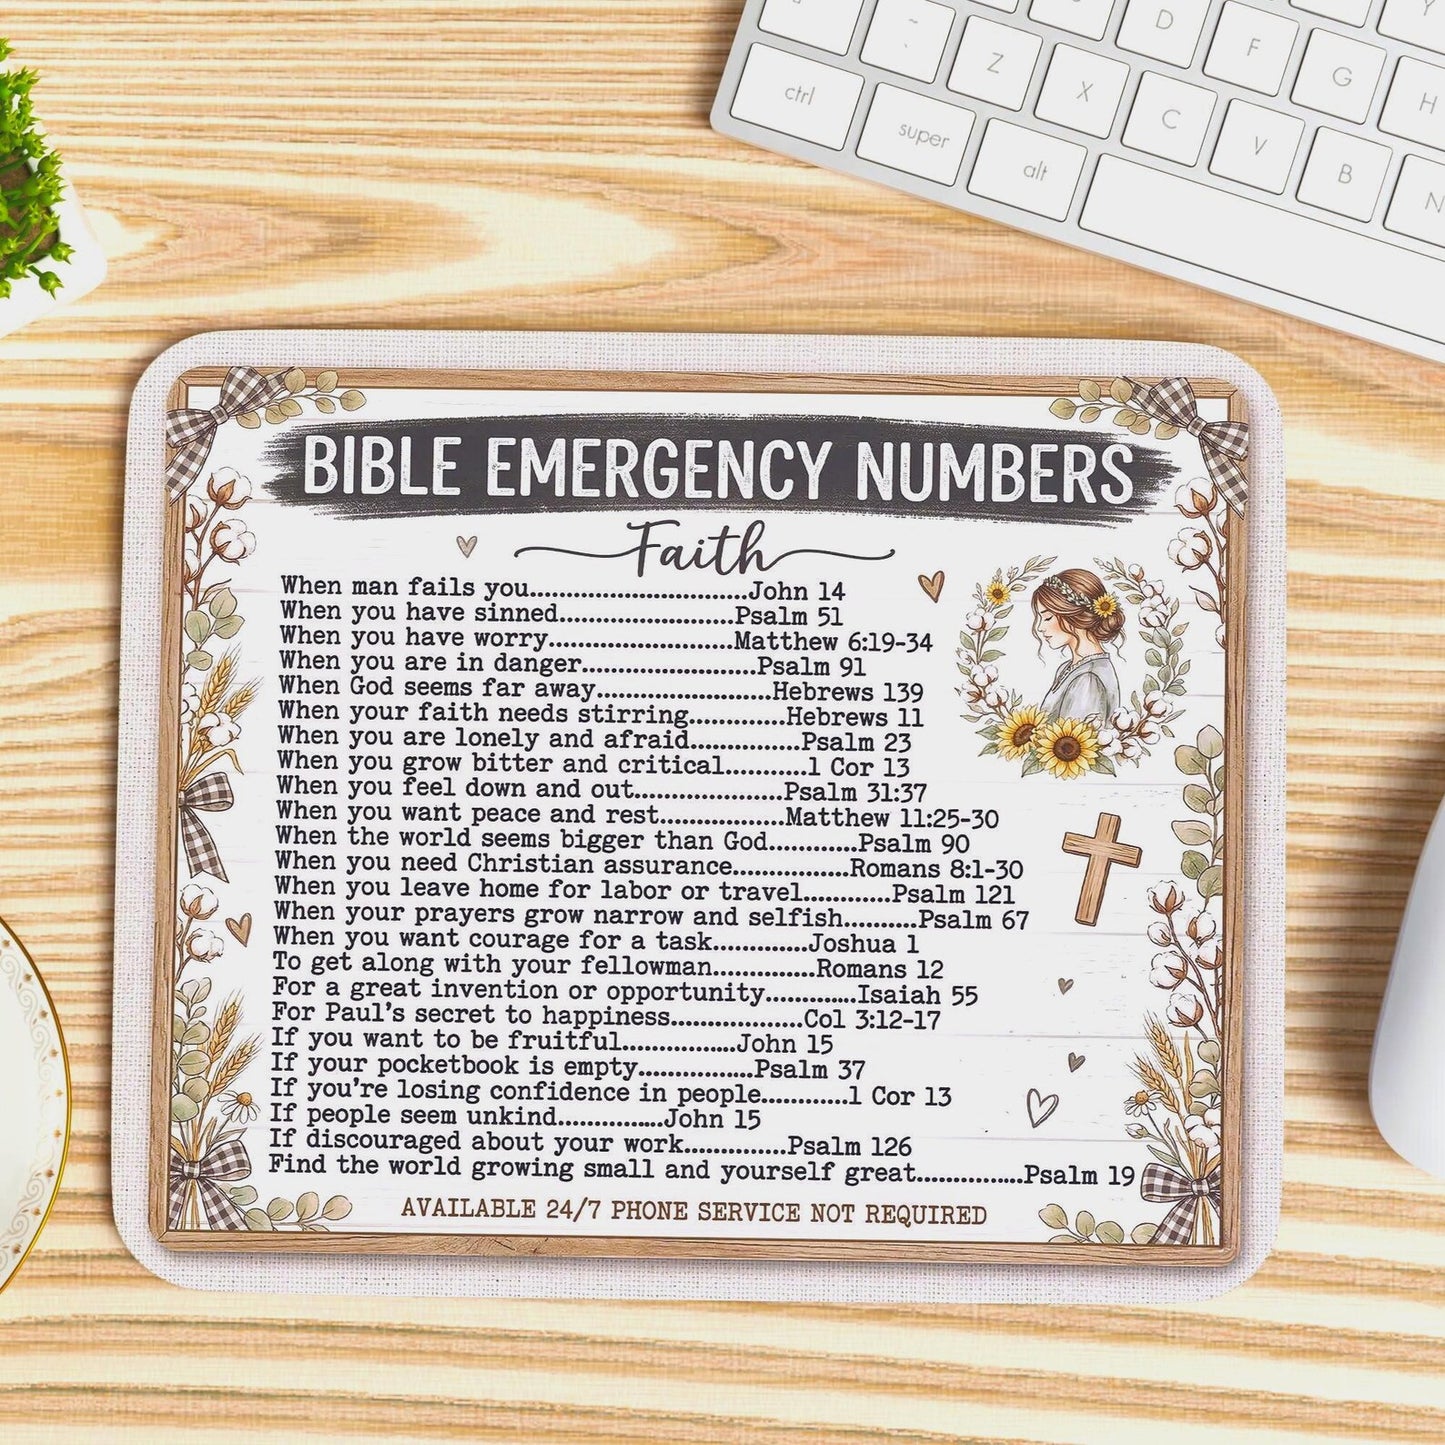 D
F
Y
Z
X
G
H
ctrl
C
V
super
B
alt
N
BIBLE EMERGENCY NUMBERS
Faith
When man fails you...............................John 14
When you have sinned.........................Psalm 51
When you have worry..........................Matthew 6:19-34
When you are in danger.........................Psalm 91
When God seems far away.........................Hebrews 139
When your faith needs stirring..............Hebrews 11
When you are lonely and afraid................Psalm 23
When you grow bitter and critical............1 Cor 13
When you feel down and out.....................Psalm 31:37
When you want peace and rest..................Matthew 11:25-30
When the world seems bigger than God.............Psalm 90
When you need Christian assurance.................Romans 8:1-30
When you leave home for labor or travel.............Psalm 121
When your prayers grow narrow and selfish...........Psalm 67
When you want courage for a task..............Joshua 1
To get along with your fellowman...............Romans 12
For a great invention or opportunity..............Isaiah 55
For Paul's secret to happiness...................Col 3:12-17
If you want to be fruitful.................John 15
If your pocketbook is empty.................Psalm 37
If you're losing confidence in people.............1 Cor 13
If people seem unkind................John 15
If discouraged about your work...............Psalm 126
Find the world growing small and yourself great................Psalm 19
AVAILABLE 24/7 PHONE SERVICE NOT REQUIRED